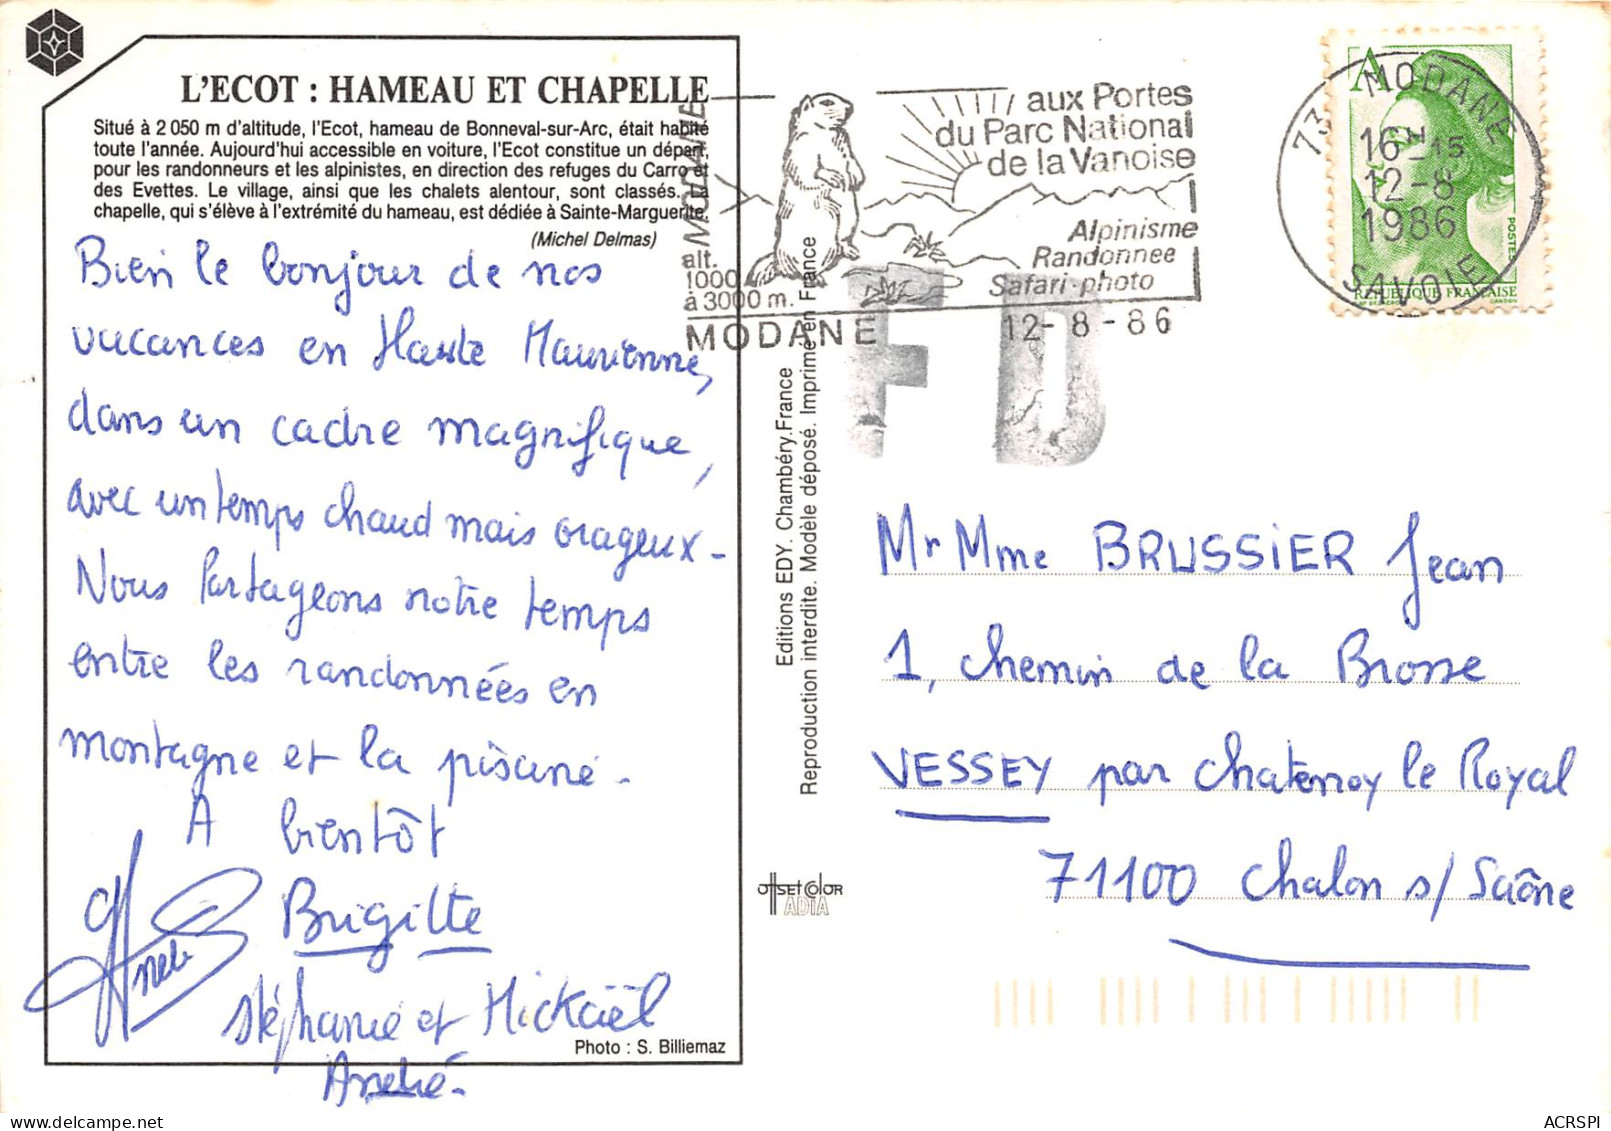 L'ECOT : HAMEAU ET CHAPELLE
Situé à 2 050 m d'altitude, l'Ecot, hameau de Bonneval-sur-Arc, était habité
toute l'année. Aujourd'hui accessible en voiture, l'Ecot constitue un départ,
pour les randonneurs et les alpinistes, en direction des refuges du Carro et
des Evettes. Le village, ainsi que les chalets alentour, sont classés. La
chapelle, qui s'élève à l'extrémité du hameau, est dédiée à Sainte-Marguerite.
(Michel Delmas)
Bien le bonjour de nos
vacances en Haute Maurienne,
dans un cadre magnifique,
avec un temps chaud mais orageux -
Nous Partageons notre temps
entre les randonnées en
montagne et la piscine -
A bientôt
Brigitte
Stéphanie et Mickaël
André -
Photo : S. Billiemaz
Editions EDY. Chambéry.France
Reproduction interdite. Modèle déposé. Imprimé en France
offset color
ADIA
MODANE
alt.
1000
à 3000 m.
MODANE
aux Portes
du Parc National
de la Vanoise
Alpinisme
Randonnee
Safari-photo
12-8-86
FD
A
POSTES
REPUBLIQUE FRANÇAISE
73 MODANE
16 H 15
12-8
1986
SAVOIE
Mr Mme BRUSSIER Jean
1, chemin de la Brosse
VESSEY par Chatenoy le Royal
71100 Chalon s/ Saône
ACRSPI